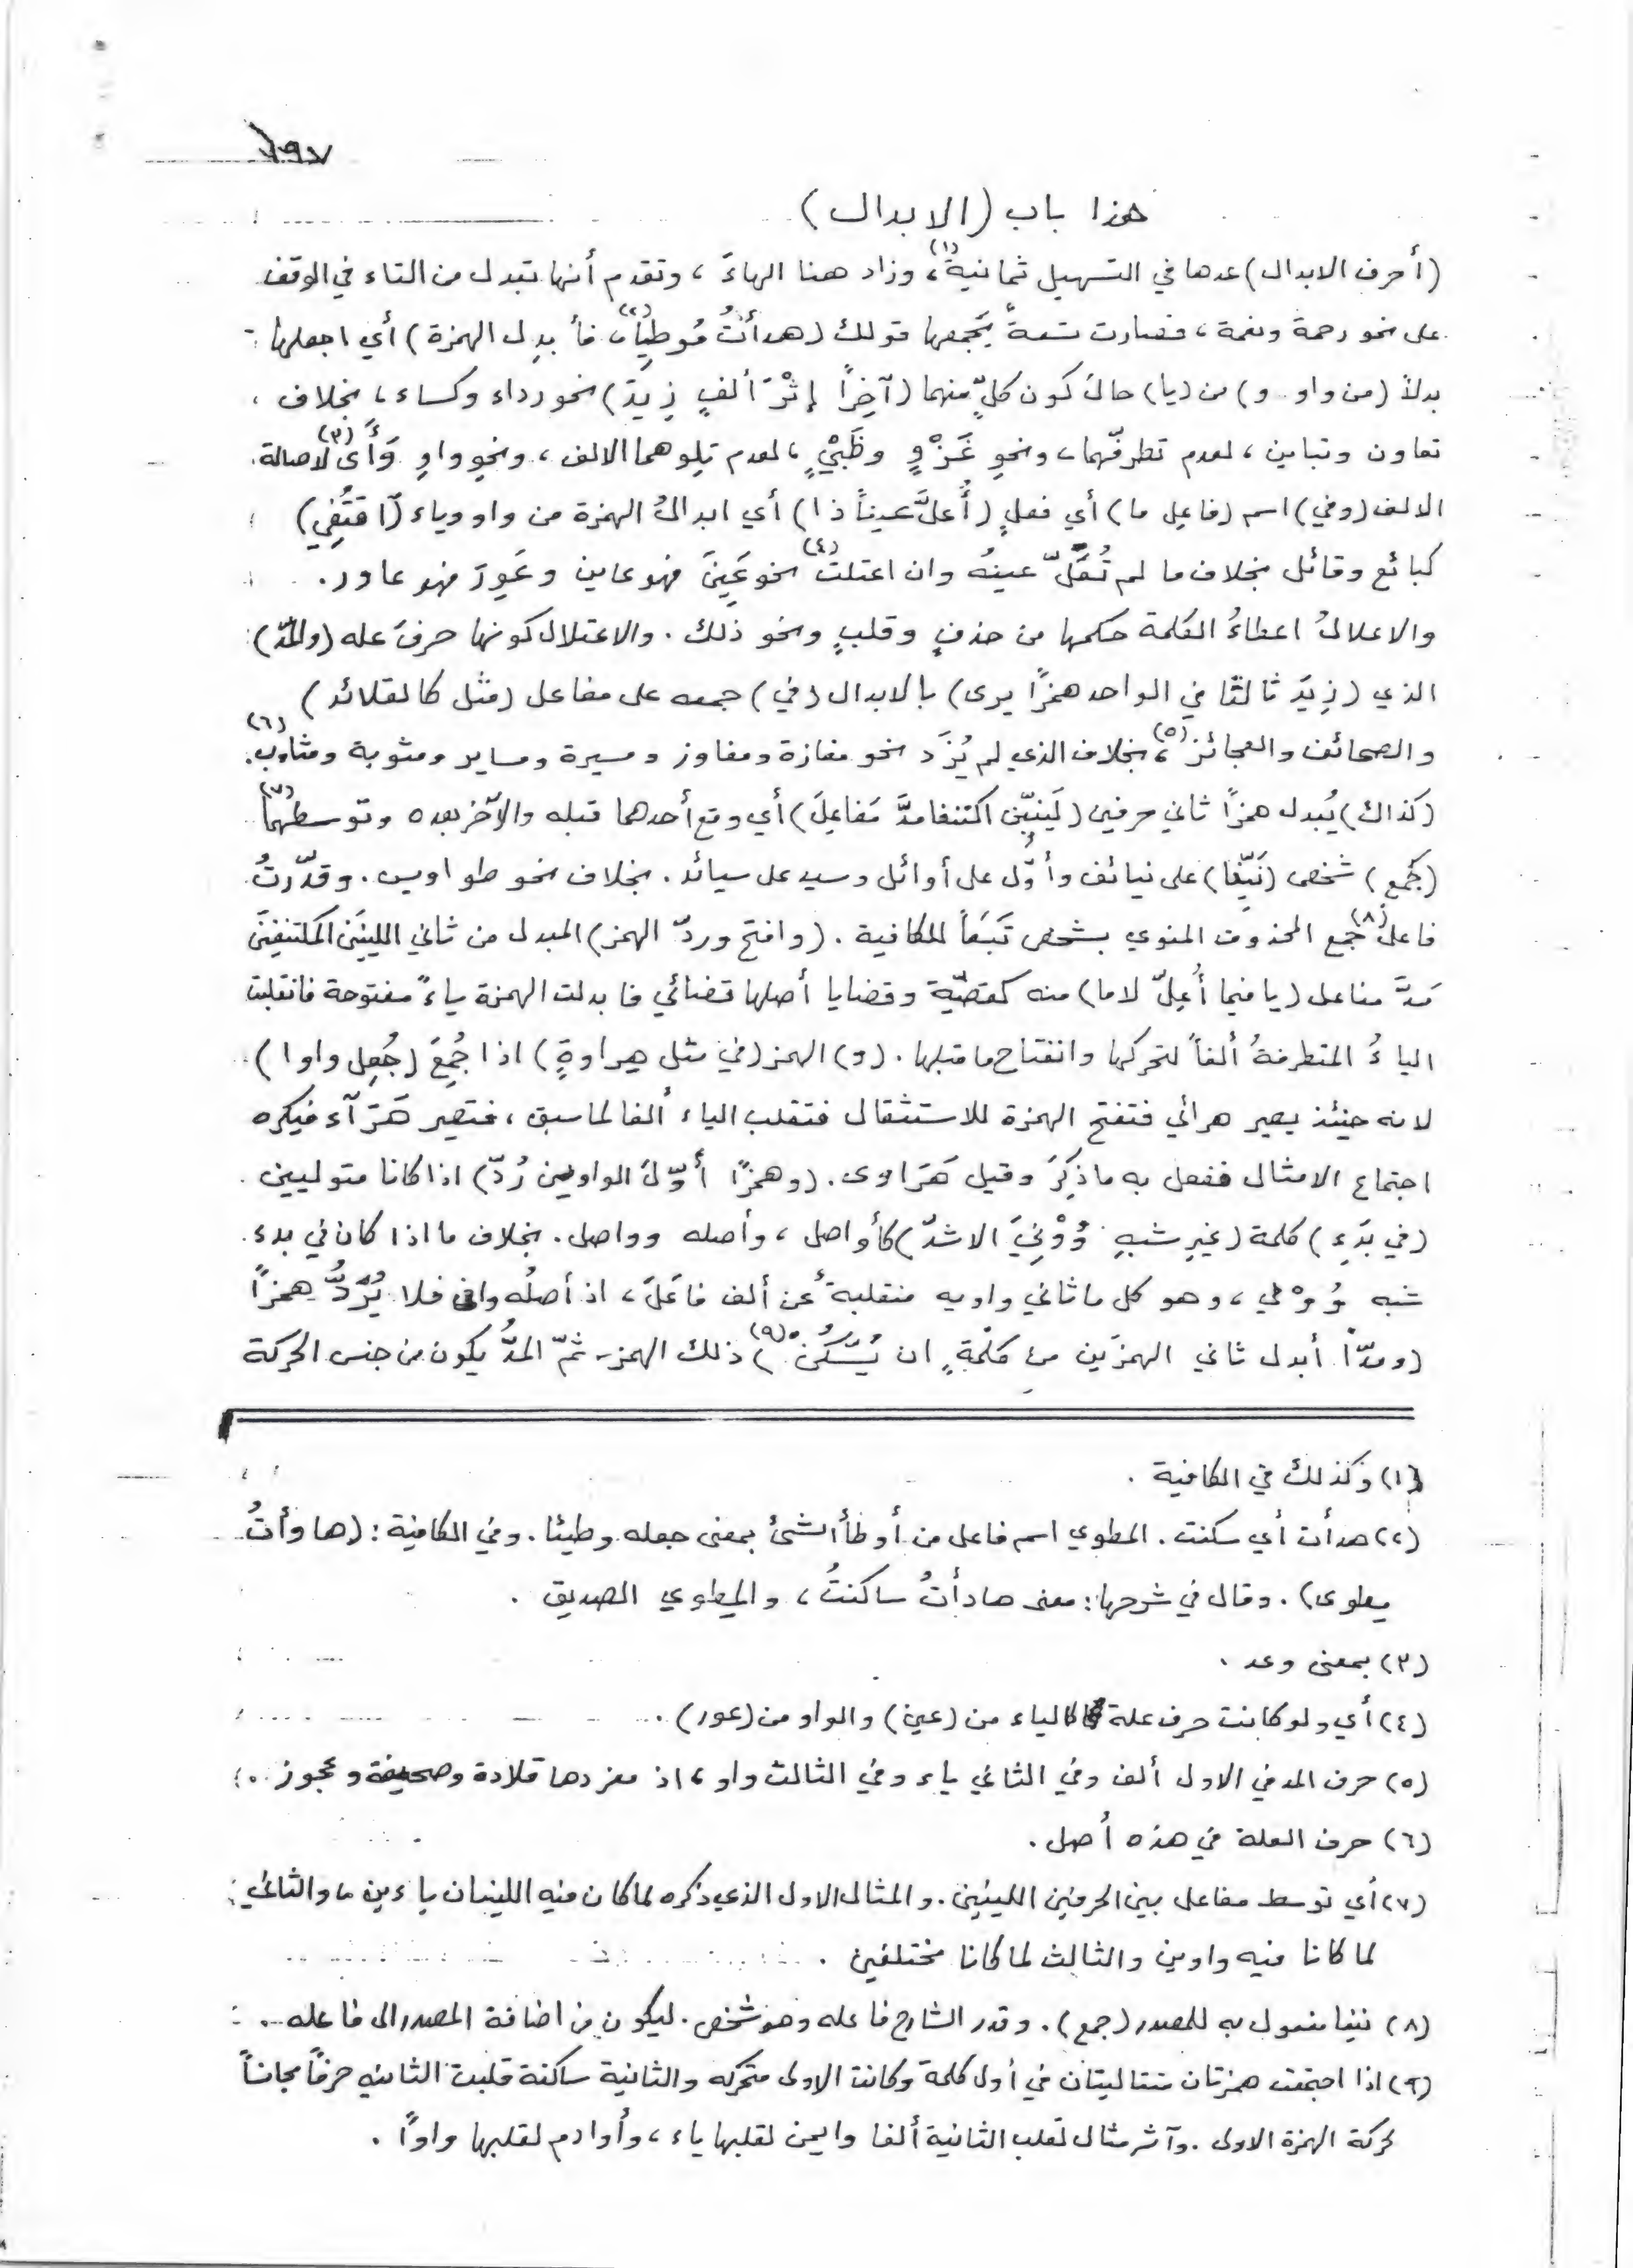 ١٩٧
هذا باب (الابدال)
(أحرف الابدال) عدها في التسهيل ثمانية(١)، وزاد هنا الهاءَ، وتقدم أنها تبدل من التاء في الوقف
على نحو رحمة ونعمة، فصارت تسعةً يَجمعها قولك (هدأتُ مُوطِيًا(٢)، فأبدِل الهمزة) أي اجعلها
بدلاً (من واو و) من (يا) حالَ كون كلٍّ منهما (آخِراً إثْرَ ألفٍ زِيدَ) نحو رداء وكساء، بخلاف،
تعاون وتباين، لعدم تطرفّهما، ونحوِ غَزْوٍ وظَبْيٍ، لعدم تِلوهما الالف، ونحوِ واوٍ وَأًى(٣) لاصالة
الالف (وفي) اسم (فاعِل ما) أي فعلٍ (أُعِلَّ عيناً ذا) أي ابدالُ الهمزة من واو وياء (اقتُفِي)
كبائع وقائل بخلاف ما لم تُعَلّ عينهُ وان اعتلتْ(٤) نحو عَيِنَ فهو عاين وعَوِرَ فهو عاور.
والاعلالُ اعطاءُ الكلمة حكمها من حذفٍ وقلبٍ ونحو ذلك. والاعتلال كونها حرفَ عله (والمدّ)
الذي (زِيدَ ثالثًا في الواحد همزًا يرى) بالابدال (في) جمعه على مفاعل (مثل كالقلائد)
والصحائف والعجائز(٥)، بخلاف الذي لم يُزَد نحو مفازة ومفاوز ومسيرة ومساير ومثوبة ومثاوب(٦).
(كذاك) يُبدل همزًا ثاني حرفين (لَينِيّن اكتنفا مدَّ مَفاعِلَ) أي وقع أحدهما قبله والآخر بعده وتوسطهُما(٧)
(كجمع) شخص (نَيّفا) على نيائف وأوّل على أوائل وسيد على سيائد. بخلاف نحو طواويس. وقدّرتُ
فاعلَ(٨) جمع المحذوف المنوي بشخص تَبَعًا للكافية. (وافتح وردّ الهمز) المبدل من ثاني اللينَين المكتنفينَ
مَدّ مفاعل (يا فيما أُعِلّ لاما) منه كقضيّة وقضايا أصلها قضائي فابدلت الهمزة ياءً مفتوحة فانقلبت
الياءُ المتطرفةُ ألفاً لتحركها وانفتاح ما قبلها. (و) الهمز (في مثل هِراوةٍ) اذا جُمِعَ (جُعِل واوا)
لانه حينئذ يصير هرائي فتفتح الهمزة للاستثقال فتقلب الياء ألفا لما سبق، فتصير هَرَآء فيكره
اجتماع الامثال ففعل به ما ذُكِرَ وقيل هَرَاوى. (وهمزًا أوّلَ الواوين رُدّ) اذا كانا متوليين
(في بَدءِ) كلمة (غيرِ شبهِ وُوْفِيَ الاشدّ) كأواصل، وأصله وواصل. بخلاف ما اذا كان في بدء
شبه وُوْفي، وهو كل ما ثاني واويه منقلبةٌ عن ألف فاعَلَ، اذ أصلُه وافى فلا يُرَدُّ همزًا
(ومدّاً أبدل ثاني الهمزَين من كلمةٍ ان يُسْكن(٩)) ذلك الهمز، ثمّ المدُّ يكون من جنس الحركة
(١) وكذلك في الكافية.
(٢) هدأت أي سكنت. الموطي اسم فاعل من أوطأ الشئ بمعنى جعله وطيئا. وفي الكافية: (هادأتُ
مطوى). وقال في شرحها: معنى هادأتُ ساكنتُ، والمطوي الصديق.
(٣) بمعنى وعد.
(٤) أي ولو كانت حرف علة كالياء من (عين) والواو من (عور).
(٥) حرف المد في الاول ألف وفي الثاني ياء وفي الثالث واو، اذ مفردها قلادة وصحيفة وعجوز.
(٦) حرف العلة في هذه أصل.
(٧) أي توسط مفاعل بين الحرفين اللينين. والمثال الاول الذي ذكره لما كان فيه اللينان ياءين، والثاني
لما كانا فيه واوين والثالث لما كانا مختلفين.
(٨) نيفا مفعول به للمصدر (جمع). وقدر الشارح فاعله وهو شخص. ليكون من اضافة المصدر الى فاعله.
(٩) اذا اجتمعت همزتان متتاليتان في أول كلمة وكانت الاولى متحركه والثانية ساكنة قلبت الثانيه حرفاً مجانساً
لحركة الهمزة الاولى. وآثر مثال لقلب الثانية ألفا وايمن لقلبها ياء، وأوادم لقلبها واواً.